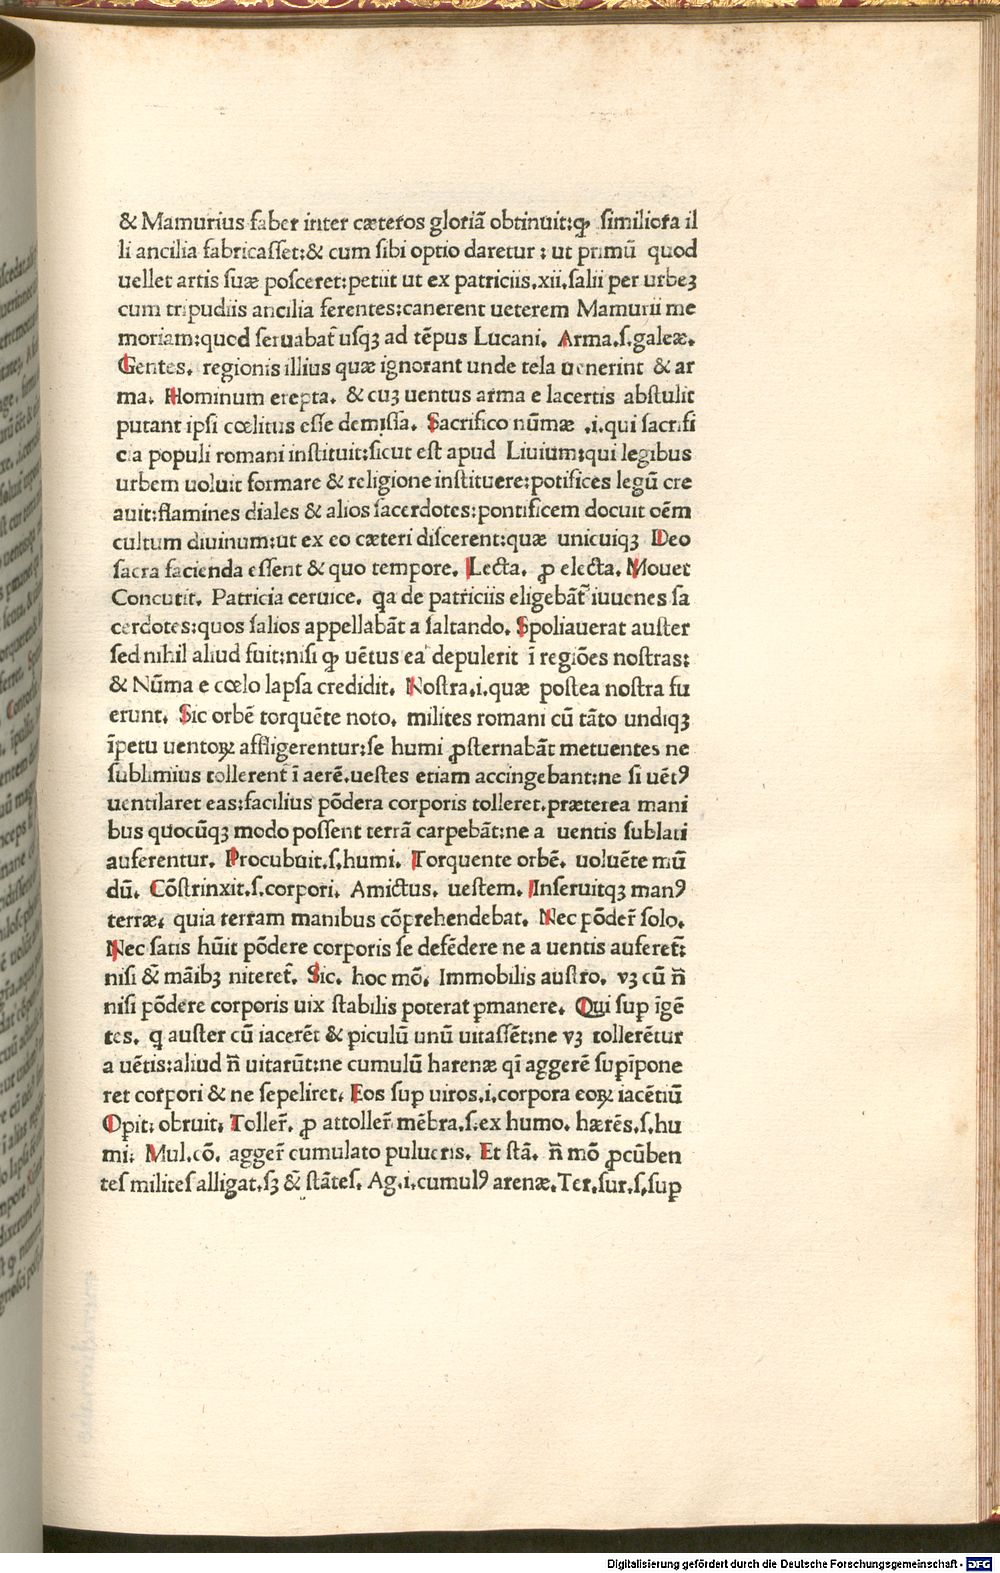 & Mamurius faber inter cæteros gloriã obtinuit:ꝙ similiora il
li ancilia fabricasset:& cum sibi optio daretur : ut primũ quod
uellet artis suæ posceret:petiit ut ex patriciis.xii.salii per urbeꝫ
cum tripudiis ancilia ferentes:canerent ueterem Mamurii me
moriam:quod seruabat᷑ usqꝫ ad tẽpus Lucani. Arma.s.galeæ.
Gentes. regionis illius quæ ignorant unde tela uenerint & ar
ma. Hominum erepta. & cuꝫ uentus arma e lacertis abstulit
putant ipsi cœlitus esse demissa. Sacrifico nũmæ .i.qui sacrifi
cia populi romani instituit:sicut est apud Liuium:qui legibus
urbem uoluit formare & religione instituere:potifices legũ cre
auit:flamines diales & alios sacerdotes:pontificem docuit oẽm
cultum diuinum:ut ex eo cæteri discerent:quæ unicuiqꝫ Deo
sacra facienda essent & quo tempore. Lecta. ꝓ electa. Mouet
Concutit. Patricia ceruice. q̃a de patriciis eligebãt᷑ iuuenes sa
cerdotes:quos salios appellabãt a saltando. Spoliauerat auster
sed nihil aliud fuit:nisi ꝙ uẽtus ea depulerit ĩ regiões nostras:
& Nũma e cœlo lapsa credidit. Nostra.i.quæ postea nostra fu
erunt. Sic orbẽ torquẽte noto. milites romani cũ tãto undiqꝫ
ĩpetu uentoꝝ affligerentur:se humi ꝓsternabãt metuentes ne
sublimius tollerent ĩ aerẽ.uestes etiam accingebant:ne si uẽtꝰ
uentilaret eas:facilius põdera corporis tolleret.præterea mani
bus quocũqꝫ modo possent terrã carpebãt:ne a uentis sublati
auferentur. Procubuit.s.humi. Torquente orbẽ. uoluẽte mũ
dũ. Cõstrinxit.s.corpori. Amictus. uestem. Inseruitqꝫ manꝰ
terræ: quia terram manibus cõprehendebat. Nec põder᷑ solo.
Nec satis hũit põdere corporis se defẽdere ne a uentis auferet᷑:
nisi & mãibꝫ niteret᷑. Sic. hoc mõ. Immobilis austro. vꝫ cũ ñ
nisi põdere corporis uix stabilis poterat ꝑmanere. Qui suꝑ ĩgẽ
tes. q̃ auster cũ iacerẽt & ꝑiculũ unũ uitassẽt:ne vꝫ tollerẽtur
a uẽtis:aliud ñ uitarũt:ne cumulũ harenæ qĩ aggerẽ suꝑĩpone
ret corpori & ne sepeliret. Eos suꝑ uiros.i.corpora eoꝝ iacẽtiũ
Oꝑit: obruit: Toller᷑. ꝓ attoller᷑ mẽbra.s.ex humo. hærẽs.s.hu
mi. Mul.cõ. agger᷑ cumulato pulueris. Et stã. ñ mõ ꝓcũben
tes milites alligat.sꝫ & stãtes. Ag.i.cumulꝰ arenæ.Ter.sur.s.suꝑ
Digitalisierung gefördert durch die Deutsche Forschungsgemeinschaft - DFG